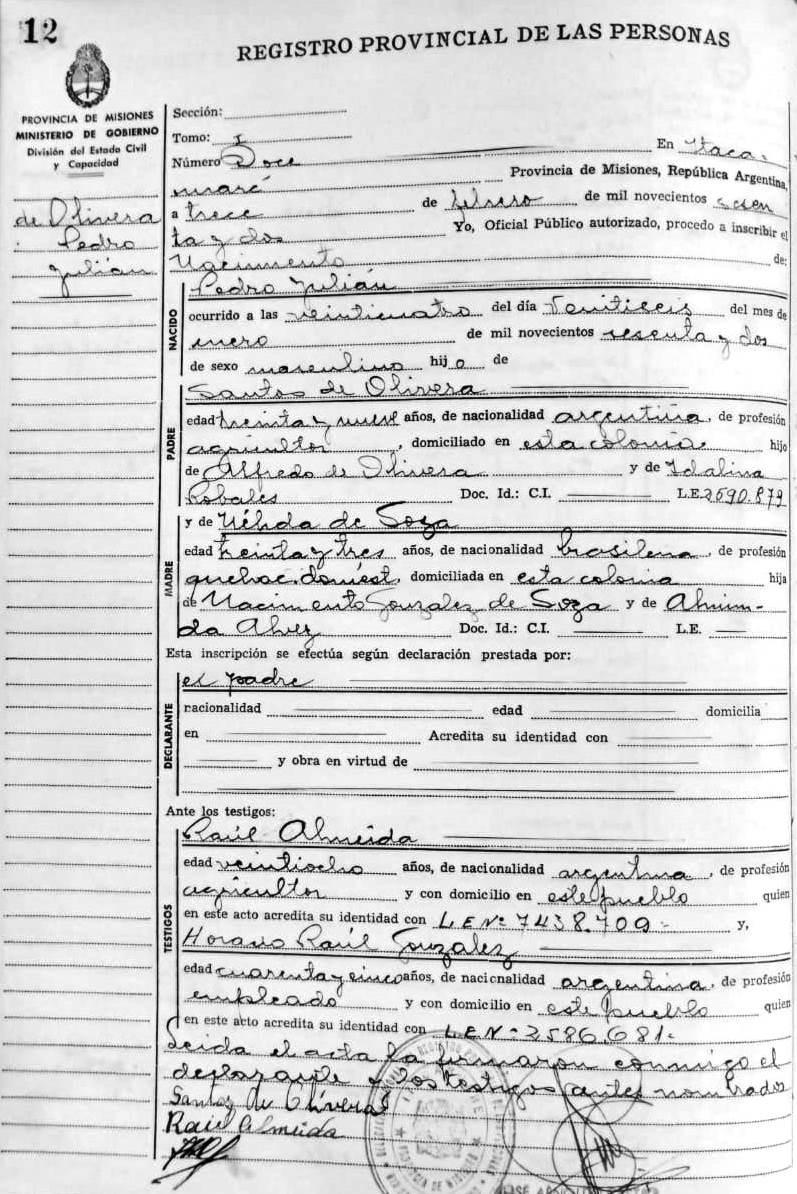 12
REGISTRO PROVINCIAL DE LAS PERSONAS
PROVINCIA DE MISIONES
MINISTERIO DE GOBIERNO
División del Estado Civil
y Capacidad
de Olivera
Pedro
Julián
Sección:
Tomo: I
Número Doce En Itaca-
ruaré Provincia de Misiones, República Argentina,
a trece de febrero de mil novecientos sesen
ta y dos Yo, Oficial Público autorizado, procedo a inscribir el
Nacimiento de:
NACIDO
Pedro Julián
ocurrido a las veinticuatro del día Veintiseis del mes de
enero de mil novecientos sesenta y dos
de sexo masculino hijo de
PADRE
Santos de Olivera
edad treinta y nueve años, de nacionalidad argentina, de profesión
agricultor, domiciliado en esta colonia hijo
de Alfredo de Olivera y de Idalina
Robales Doc. Id.: C.I. L.E. 2690.879
MADRE
y de Nélida de Soza
edad treinta y tres años, de nacionalidad brasilena, de profesión
quehac. domest. domiciliada en esta colonia hija
de Nacimento Gonzalez de Soza y de Almin-
da Alvez Doc. Id.: C.I. L.E.
Esta inscripción se efectúa según declaración prestada por:
DECLARANTE
el padre
nacionalidad edad domicilia
en Acredita su identidad con
y obra en virtud de
Ante los testigos:
TESTIGOS
Raúl Almeida
edad veintiocho años, de nacionalidad argentina, de profesión
agricultor y con domicilio en este pueblo quien
en este acto acredita su identidad con L E Nº 7438.709- y,
Horacio Raúl Gonzalez
edad cuarenta y cinco años, de nacionalidad argentina, de profesión
empleado y con domicilio en este pueblo quien
en este acto acredita su identidad con L.E.Nº 2586.681-
Leida el acta la firmaron conmigo el
declarante y los testigos antes nombrados
Santos de Olivera
Raúl Almeida